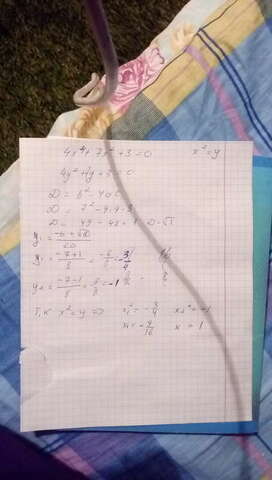 4x⁴+7x²+3=0    x²=y
4y²+7y+3=0
D=b²-4ac
D=7²-4·4·3
D=49-48=1
y₁=
y₁=(-7+1)/8=-6/8=-3/4
y₂=(-7-1)/8=-8/8=-1
Т.к x²=y ⇒ x₁²=-3/4    x₂²=-1
x₁=-9/16    x=1